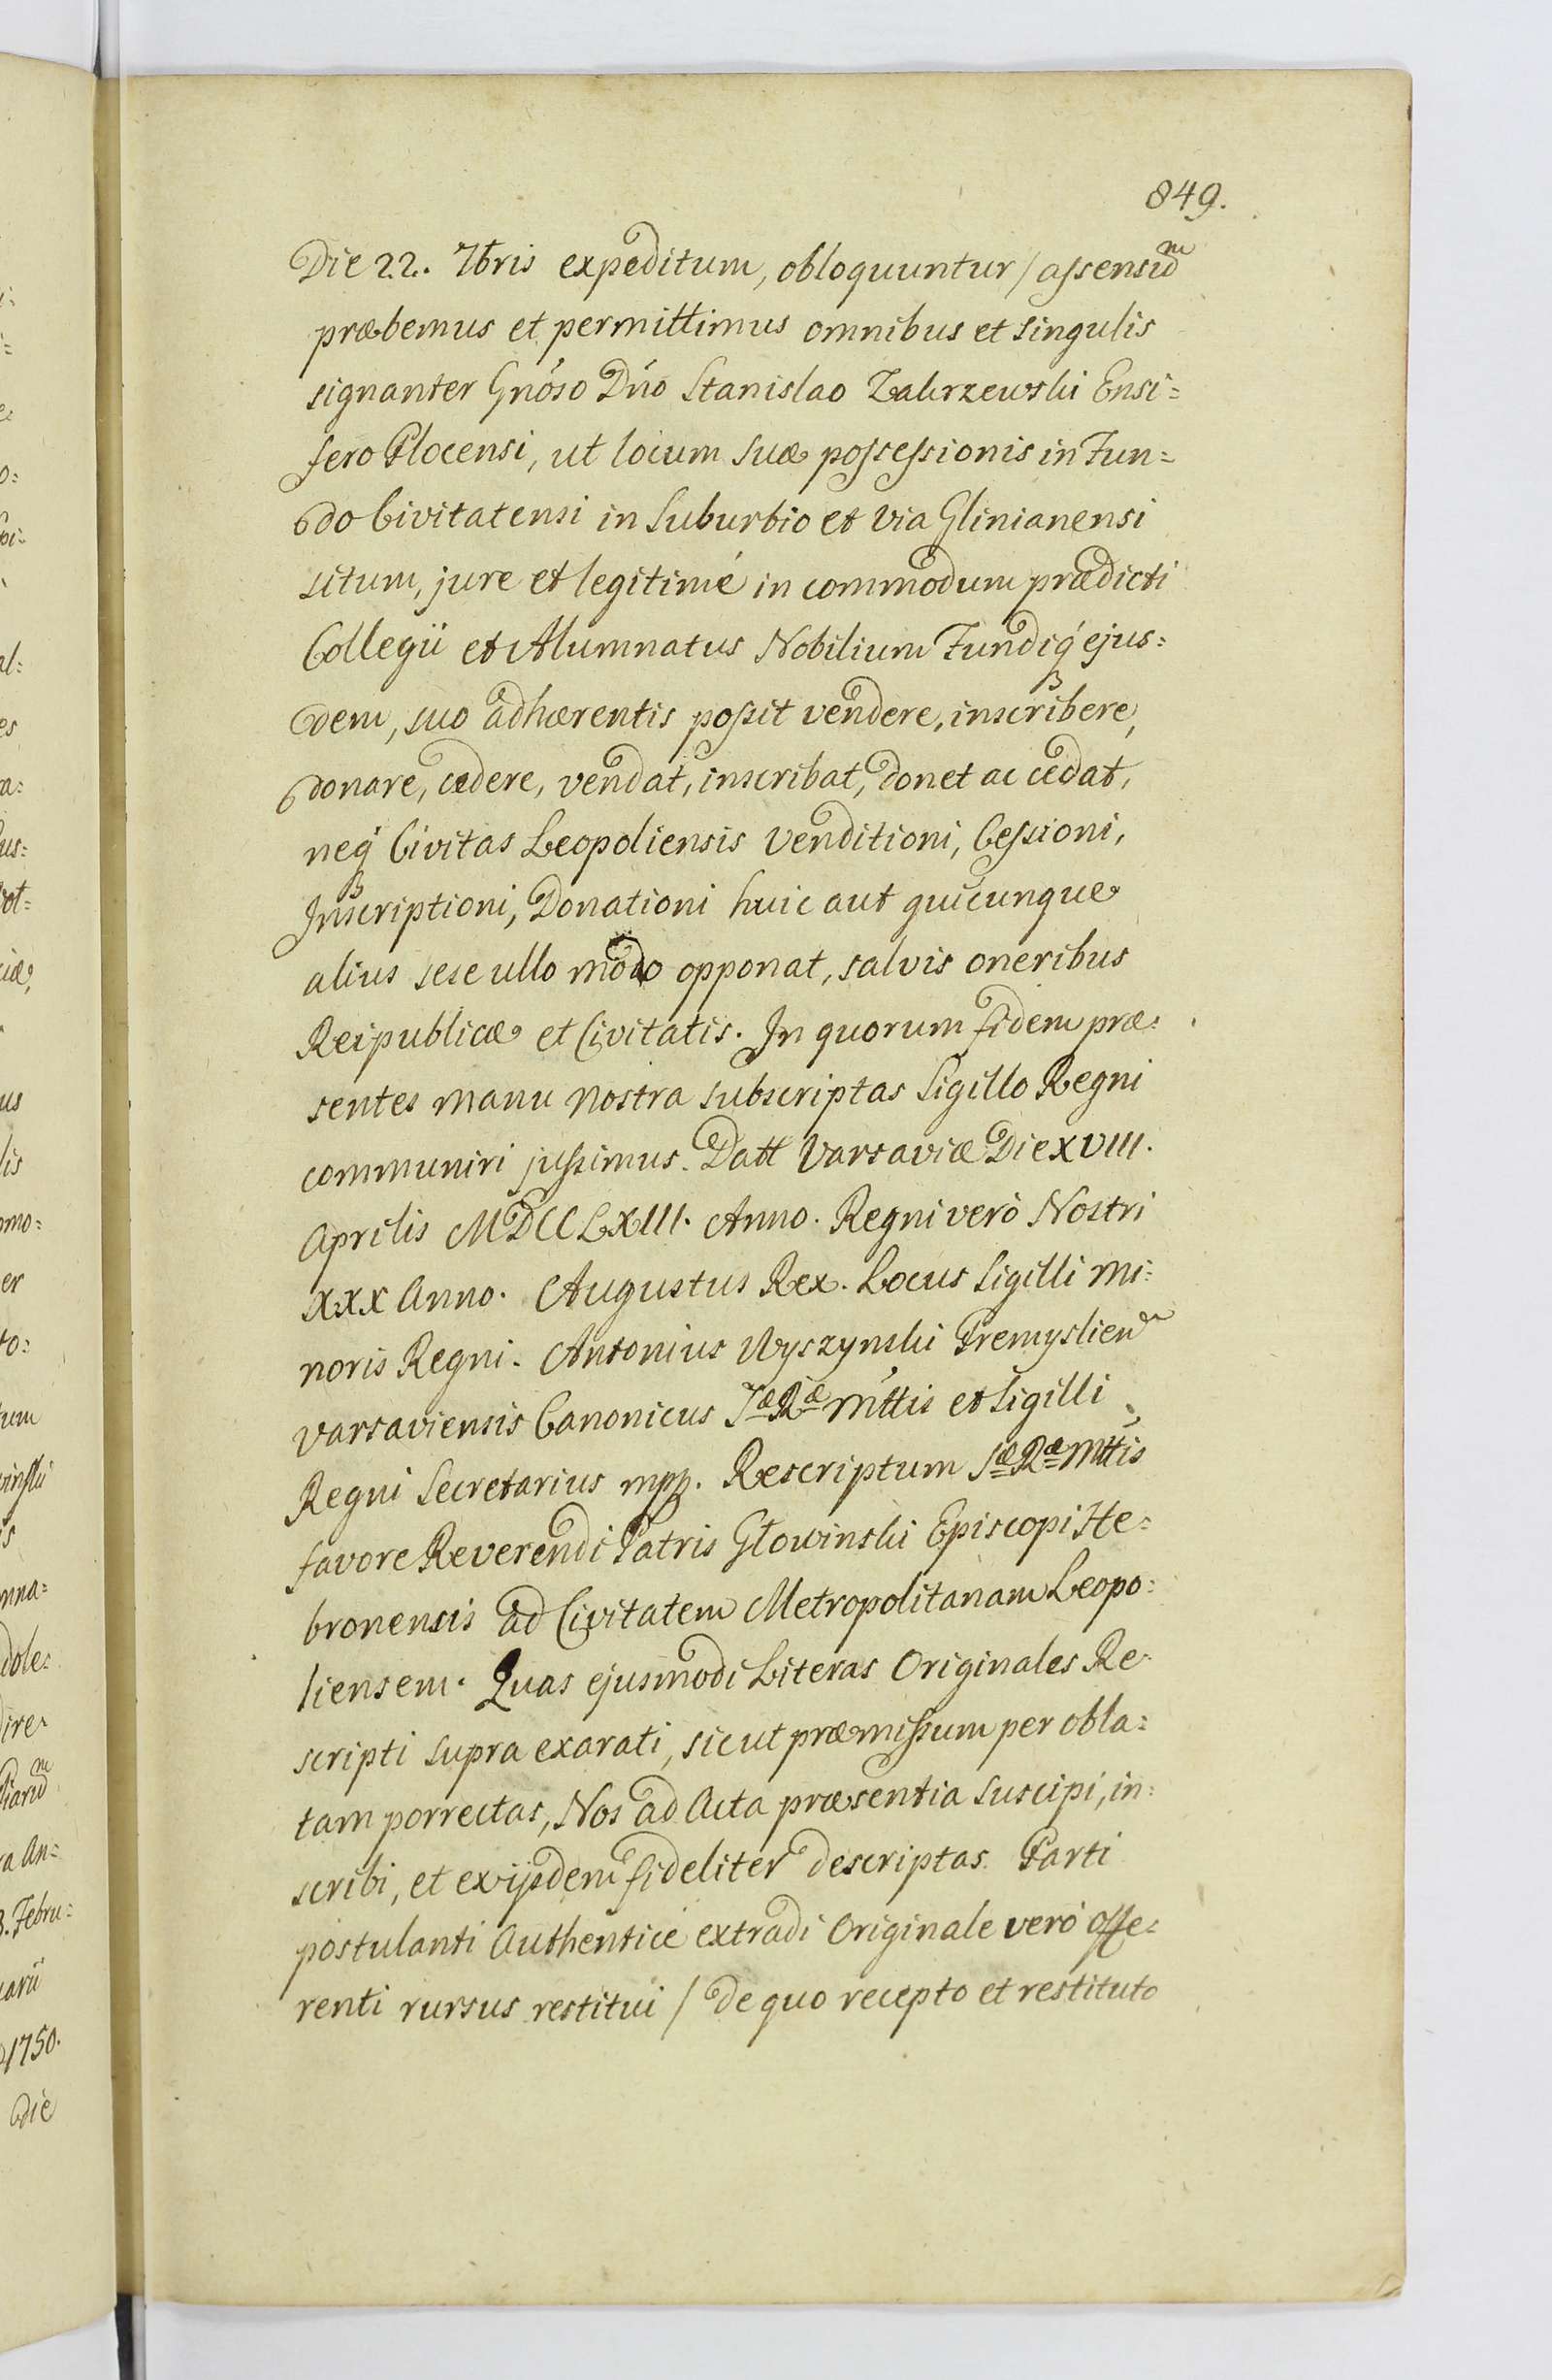 849.
Die 22. 7bris expeditum, obloquuntur / assensũm
præbemus et permittimus omnibus et singulis
signanter Gnóso Dńo Stanislao Zakrzewski Ensi=
fero Plocensi, ut locum suæ possessionis in Fun=
do Civitatensi in Suburbio et Via Glinianensi
situm, jure et legitimé in commodum prædicti
Collegii et Alumnatus Nobilium Fundiq́ ejus=
dem, suo adhærentis possit vendere, inscribere,
donare, cedere, vendat, inscribat, donet ac cedat,
neq́ Civitas Leopoliensis Venditioni, Cessioni,
Inscriptioni, Donationi huic aut quicunque
alius sese ullo modo opponat, salvis oneribus
Reipublicæ et Civitatis. In quorum fidem præ=
sentes manu nostra subscriptas Sigillo Regni
communiri jussimus. Datt Varsaviæ Die XVIII.
Aprilis MDCCLXIII. Anno. Regni verò Nostri
XXX Anno. Augustus Rex. Locus Sigilli mi=
noris Regni. Antonius Wyszynski Premyslien
Varsaviensis Canonicus Sæ Ræ Mttis et Sigilli
Regni Secretarius mpp. Rescriptum Sæ Ræ Mttis
favore Reverendi Patris Głowinski Episcopi He=
bronensis ad Civitatem Metropolitanam Leopo=
liensem. Quas ejusmodi Literas Originales Re=
scripti supra exarati, sicut præmissum per obla=
tam porrectas, Nos ad Acta præsentia suscipi, in=
scribi, et ex ijsdem fideliter descriptas Parti
postulanti Authenticé extradi Originale veró offe=
renti rursus restitui / de quo recepto et restituto